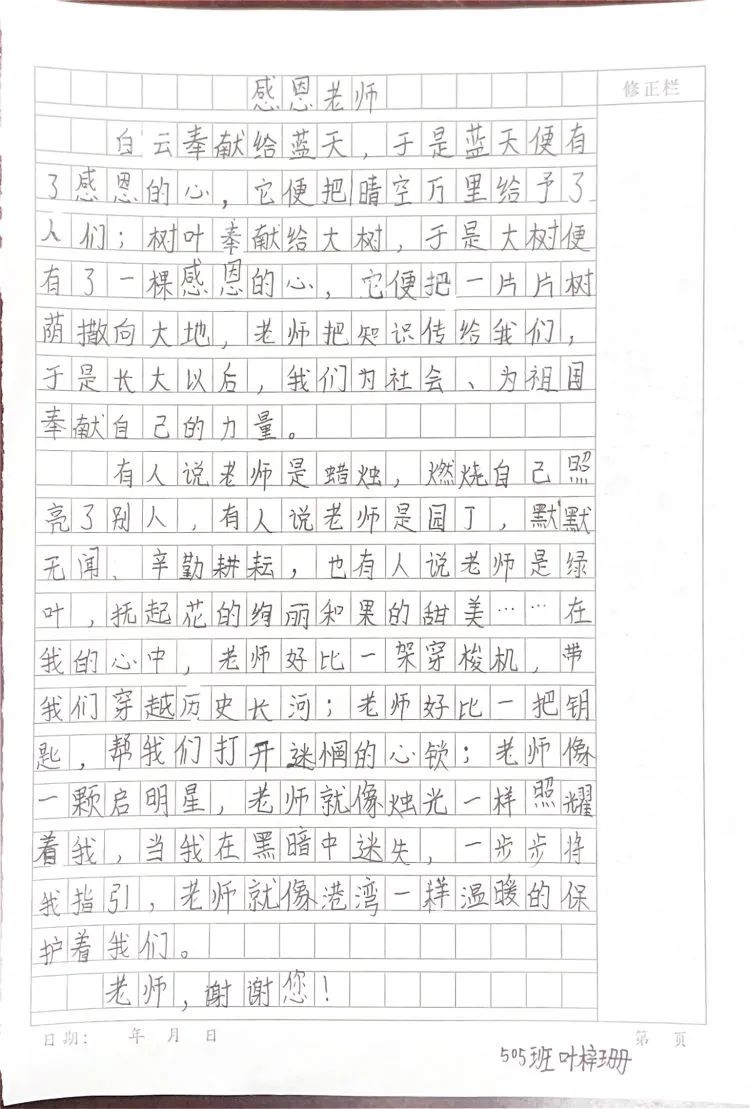 感恩老师
修正栏
白云奉献给蓝天，于是蓝天便有
了感恩的心，它便把晴空万里给予了
人们；树叶奉献给大树，于是大树便
有了一棵感恩的心，它便把一片片树
荫撒向大地，老师把知识传给我们，
于是长大以后，我们为社会、为祖国
奉献自己的力量。
有人说老师是蜡烛，燃烧自己照
亮了别人，有人说老师是园丁，默默
无闻、辛勤耕耘，也有人说老师是绿
叶，抚起花的绚丽和果的甜美……在
我的心中，老师好比一架穿梭机，带
我们穿越历史长河；老师好比一把钥
匙，帮我们打开迷惘的心锁；老师像
一颗启明星，老师就像烛光一样照耀
着我，当我在黑暗中迷失，一步步将
我指引，老师就像港湾一样温暖的保
护着我们。
老师，谢谢您！
日期： 年 月 日
第 页
505班叶梓珊